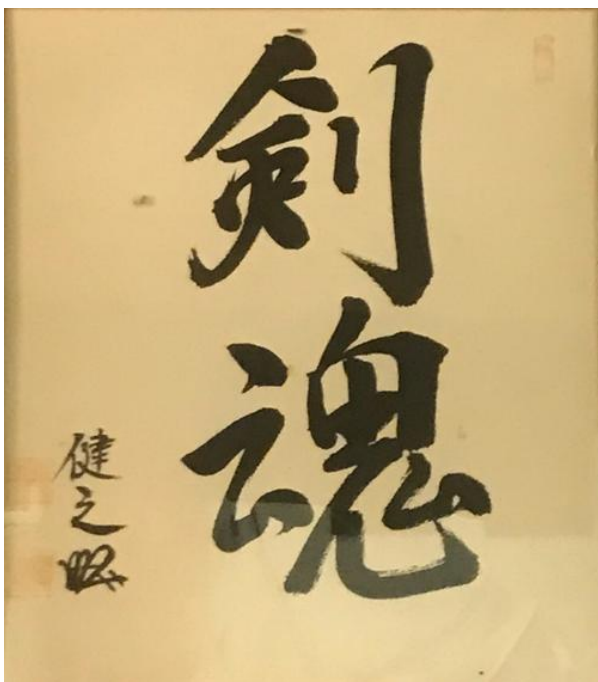 剣魂
健之